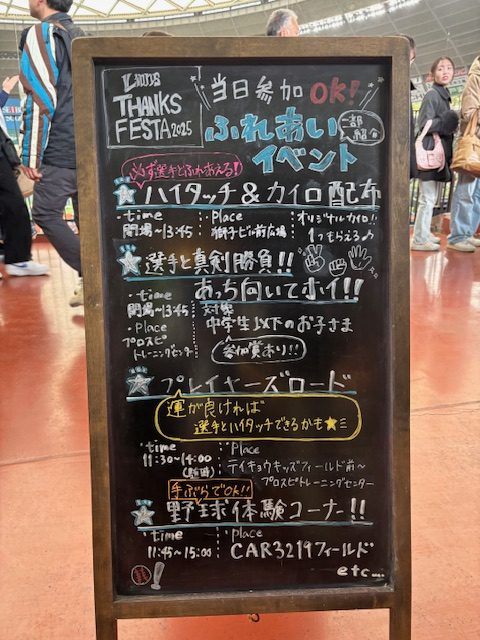 Lions
THANKS
FESTA 2025
当日参加 OK!
ふれあい
イベント
一部紹介
必ず選手とふれあえる!
ハイタッチ & カイロ配布
・time
開場〜13:45
・Place
獅子ビル前広場
オリジナルカイロ!!
1つもらえる♪
選手と真剣勝負!!
あっち向いてホイ!!
・time
開場〜13:45
・Place
プロスピ
トレーニングセンター
対象
中学生以下のお子さま
参加賞あり!!
プレイヤーズロード
運が良ければ
選手とハイタッチできるかも★ミ
・time
11:30〜14:00
・Place
テイキョウキッズフィールド前〜
プロスピトレーニングセンター
手ぶらでOK!!
野球体験コーナー!!
・time
11:45〜15:00
・Place
CAR3219フィールド
etc...